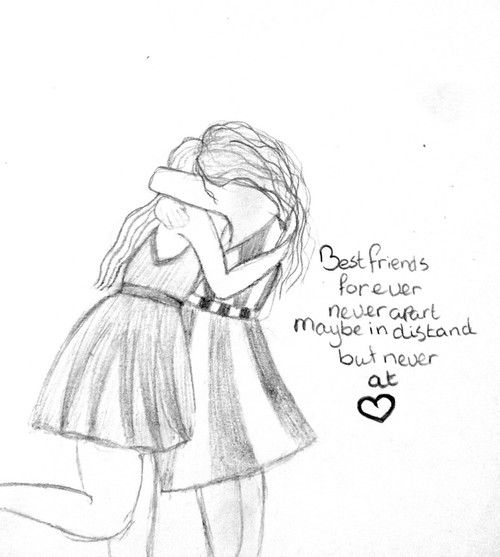 Best friends
forever
never apart
maybe in distand
but never
at